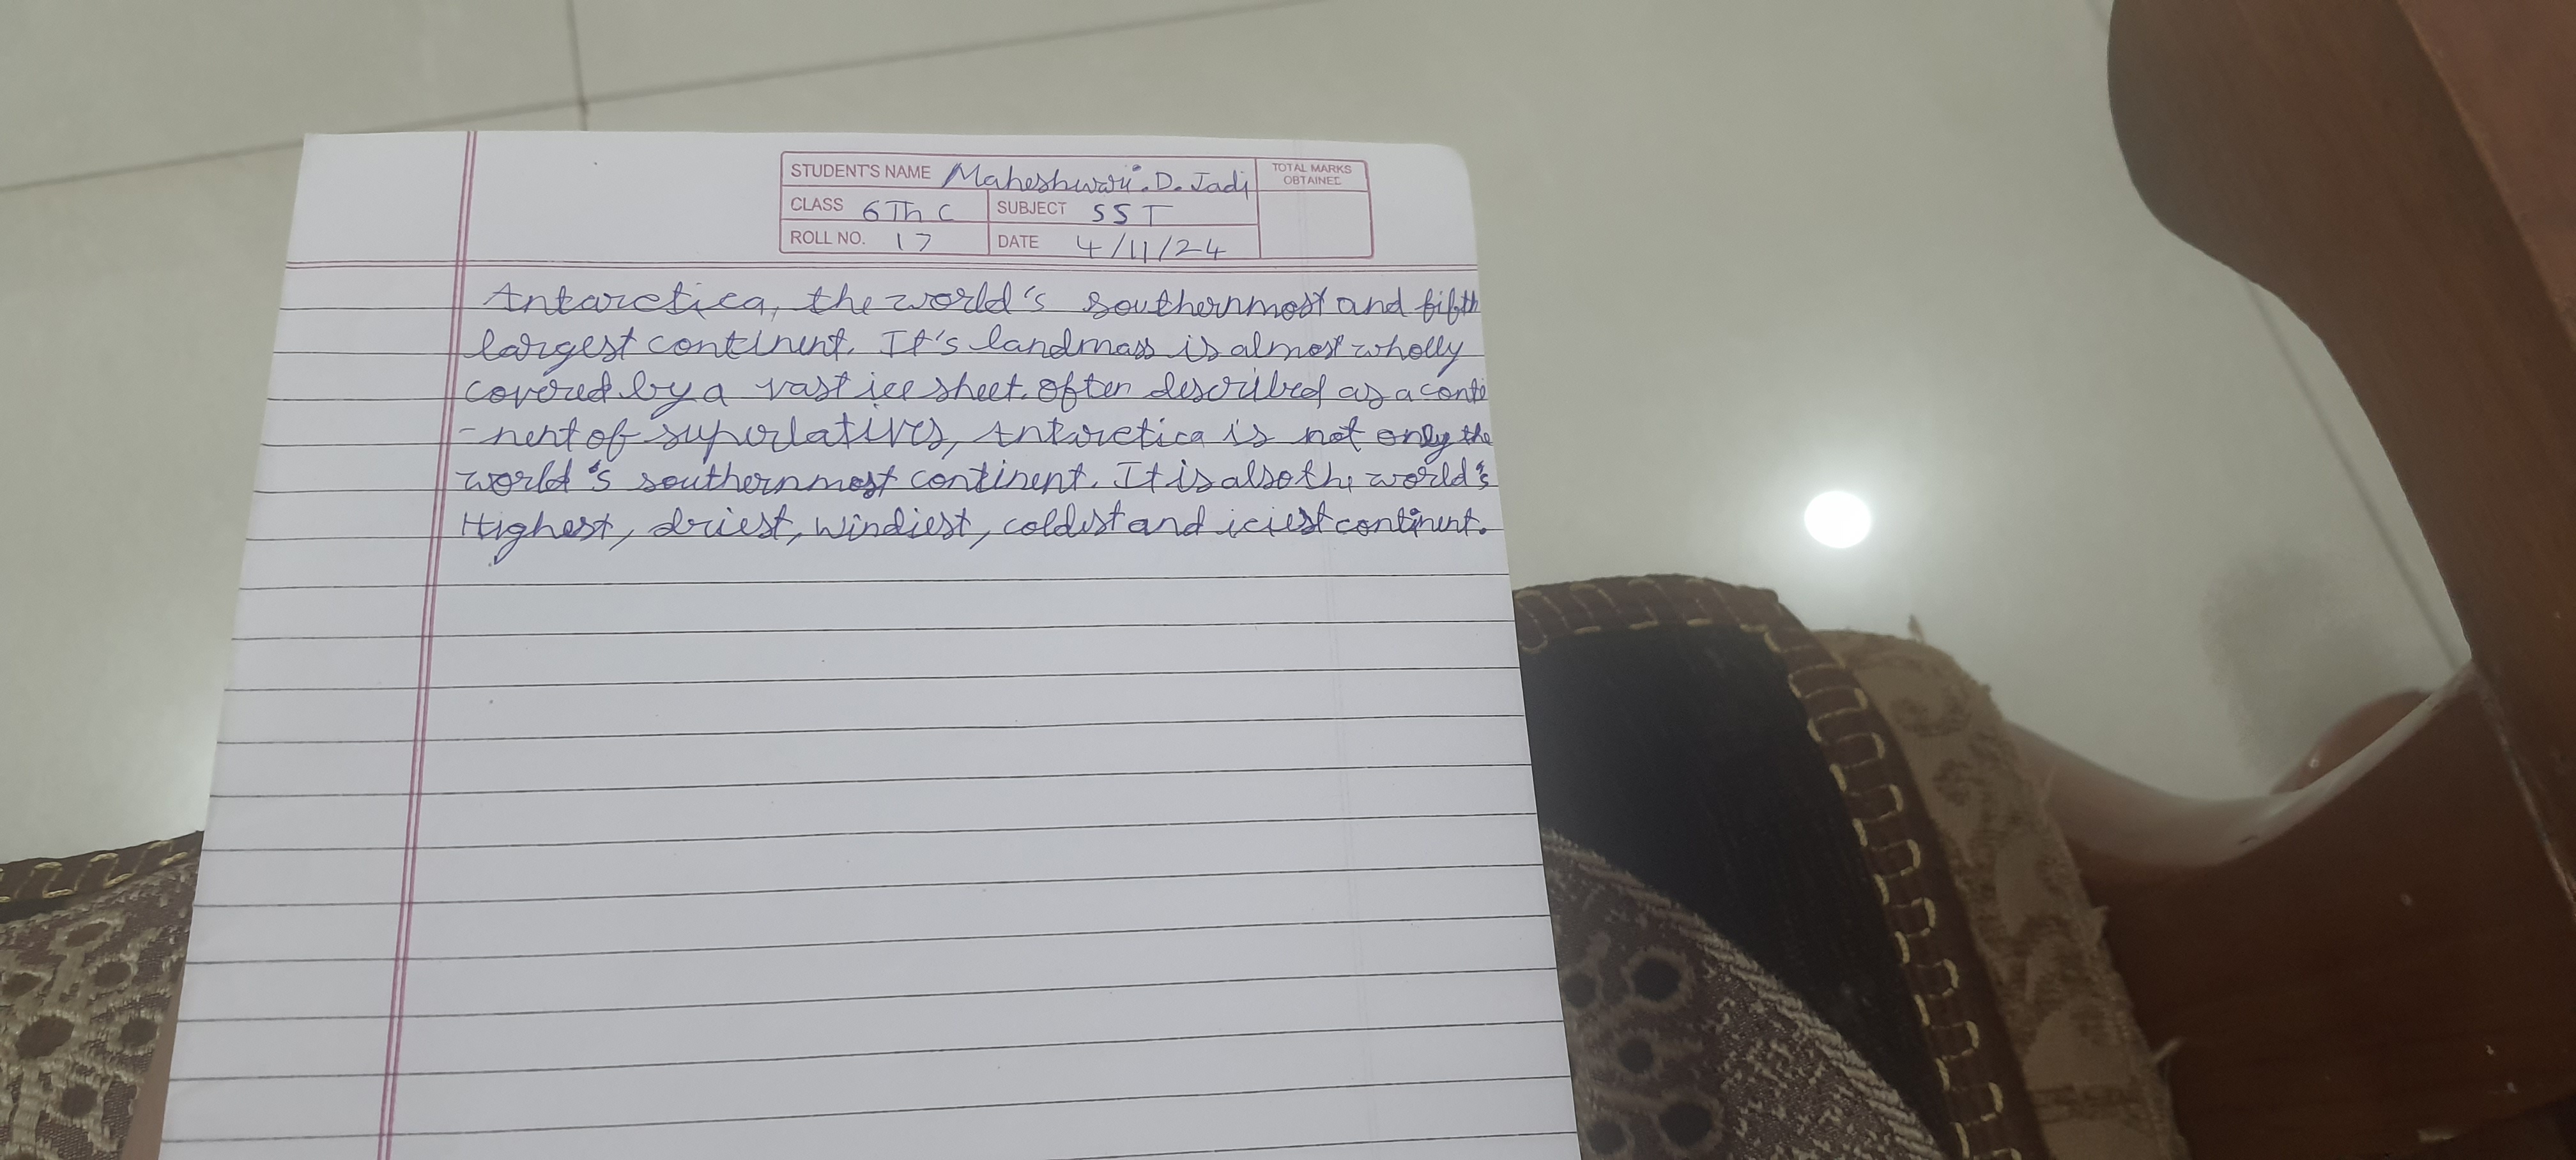 STUDENT'S NAME Maheshwari.D.Jadi TOTAL MARKS OBTAINED
CLASS 6Th C SUBJECT SST
ROLL NO. 17 DATE 4/11/24
Antarctica, the world's southernmost and fifth
largest continent. It's landmass is almost wholly
covered by a vast ice sheet. often described as a conti
-nent of superlatives, Antarctica is not only the
world's southernmost continent. It is also the world's
Highest, driest, windiest, coldest and iciest continent.